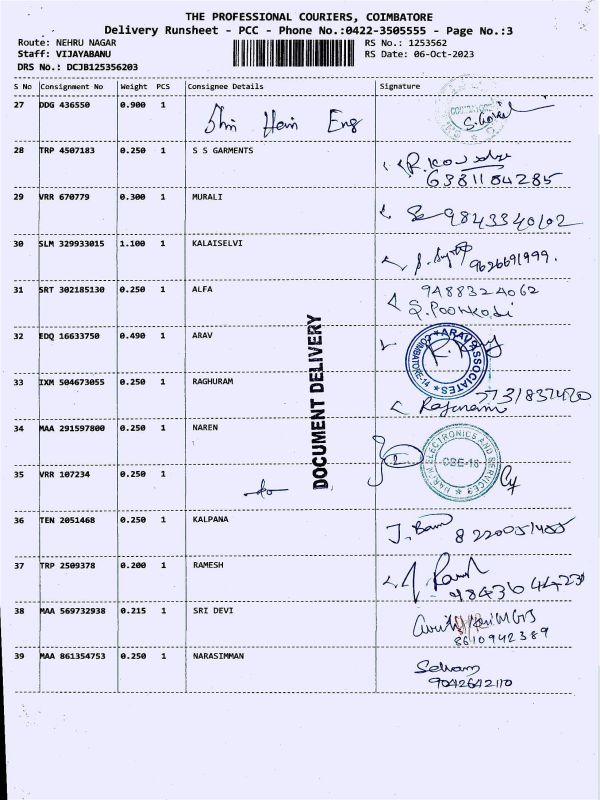 THE PROFESSIONAL COURIERS, COIMBATORE
Delivery Runsheet - PCC - Phone No.:0422-3505555 - Page No.:3
Route: NEHRU NAGAR RS No.: 1253562
Staff: VIJAYABANU RS Date: 06-Oct-2023
DRS No.: DCJB125356203
S No Consignment No Weight PCS Consignee Details Signature
27 DDG 436550 0.900 1 Shri Hari Eng
28 TRP 4507183 0.250 1 S S GARMENTS
6381184285
29 VRR 670779 0.300 1 MURALI
9843340102
30 SLM 329933015 1.100 1 KALAISELVI
9626691999.
31 SRT 302185130 0.250 1 ALFA 9488324062
S. Poonkodi
32 EDQ 16633750 0.490 1 ARAV
ARAV ASSOCIATES COIMBATORE-14
33 IXM 504673055 0.250 1 RAGHURAM
34 MAA 291597800 0.250 1 NAREN
ELECTRONICS AND SERVICES
35 VRR 107234 0.250 1
36 TEN 2051468 0.250 1 KALPANA
37 TRP 2509378 0.200 1 RAMESH
38 MAA 569732938 0.215 1 SRI DEVI
8610942389
39 MAA 861354753 0.250 1 NARASIMMAN
Selvam
9042642110
DOCUMENT DELIVERY